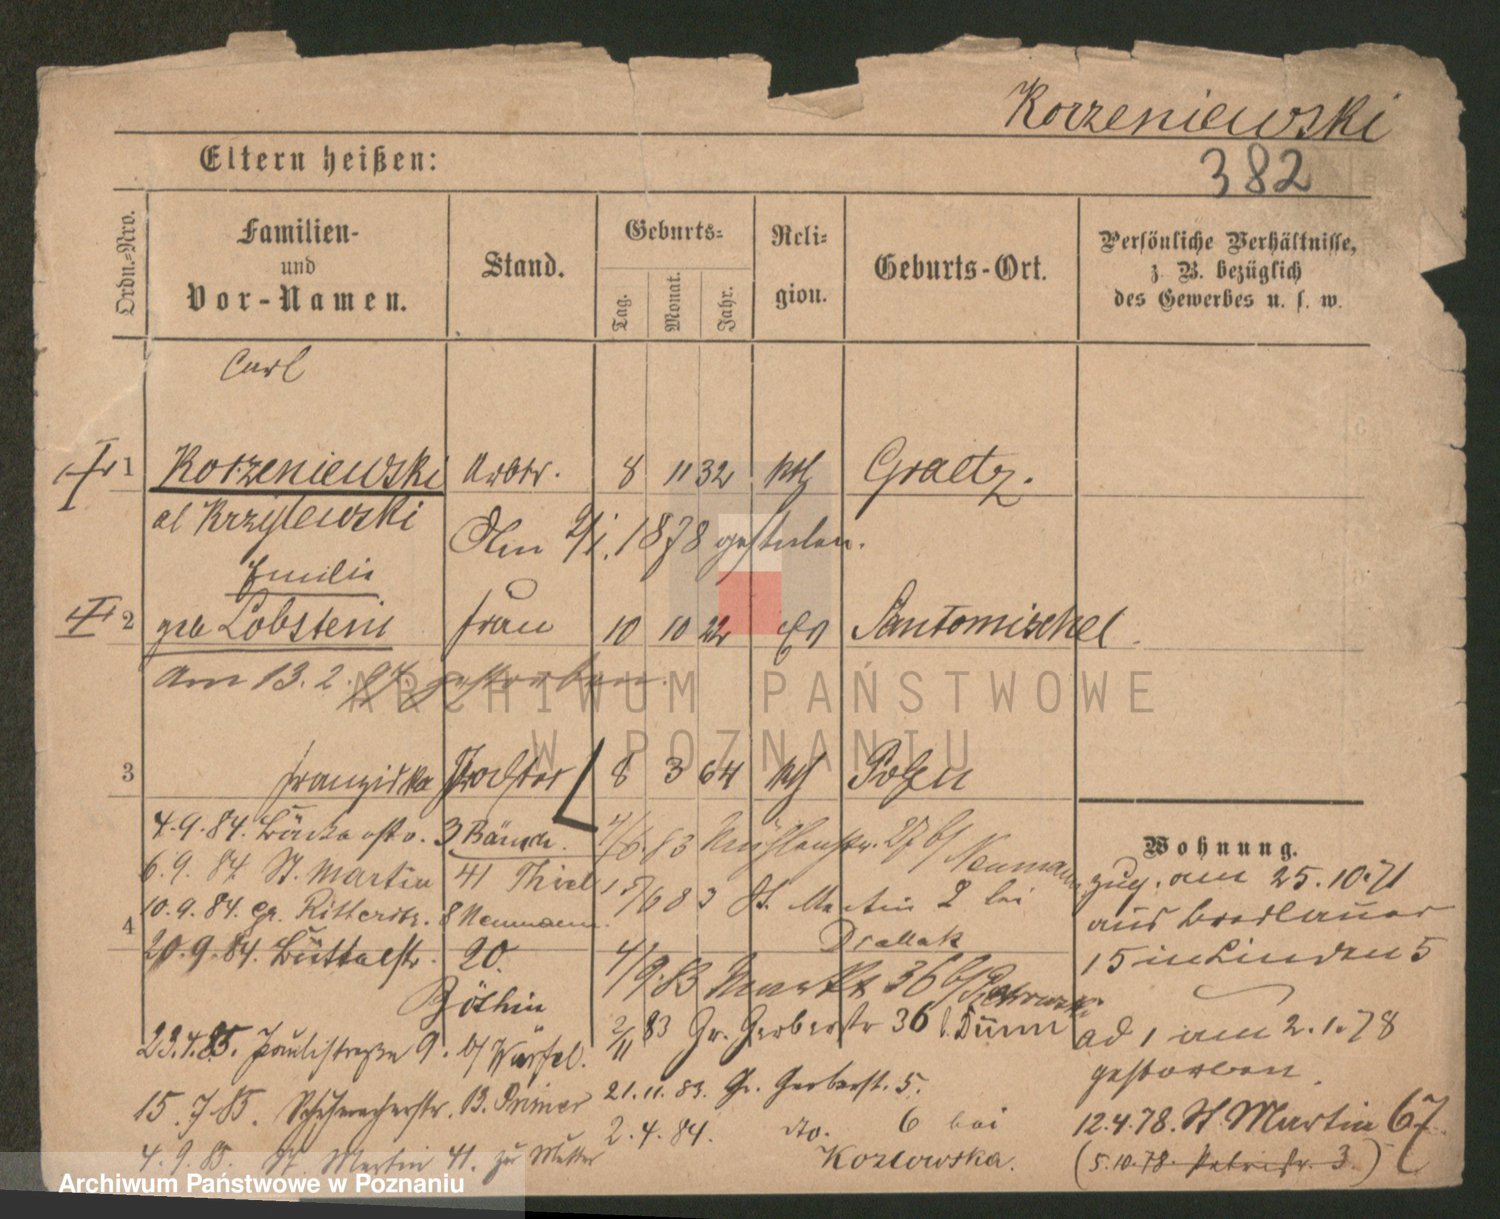 Korzeniewski
382
Eltern heißen:
Ordn.-Nro.
Familien-
und
Vor-Namen.
Stand.
Geburts-
Tag.
Monat.
Jahr.
Reli-
gion.
Geburts-Ort.
Persönliche Verhältnisse,
z. B. bezüglich
des Gewerbes u. s. w.
Carl
I 1 Korzeniewski Arbtr. 8 11 32 kth Graetz.
al Krzyzewski
Am 2/1. 1878 gestorben.
Emilie
II 2 geb Lobstein Frau 10 10 22 Ev Santomischel
Am 13.2. gestorben.
3 Franziska Tochter 8 3 64 kth Posen
4
4.9.84. 3 Bänsch.
6.9.84 St. Martin 41 Thiel
10.9.84. gr. Ritterstr. 8 Neumann.
20.9.84. Büttelstr. 20.
Böthin
23.4.85. Paulistraße 9. b/ Würfel.
15.7.85. Schuhmacherstr. 13.
4.9.85. St. Martin 41. zur Mutter
6.83 Mühlenstr. 27 b/ Neumann
15/6 83 St. Martin 2 bei
Drallak
4/9.83 Markt 36 b/
2/11 83 Gr. Gerberstr 36 b. Dümn
21.11.83. Gr. Gerberst. 5.
2.4.84. dto. 6 bei
Kozlowska.
Wohnung.
zug. am 25.10.71
aus Breslauer
15 in Linden 5
ad 1 am 2.1.78
gestorben.
12.4.78. St. Martin 67
(5.10.78. Petristr. 3.)
ARCHIWUM PAŃSTWOWE
W POZNANIU
Archiwum Państwowe w Poznaniu